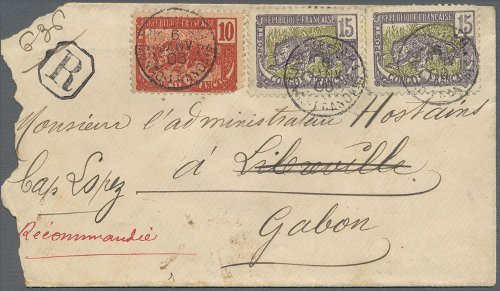 686
R
RÉPUBLIQUE FRANÇAISE 10
RÉPUBLIQUE FRANÇAISE 15
POSTES CONGO FRANÇAIS
RÉPUBLIQUE FRANÇAISE 15
CONGO FRANÇAIS
6 JANV 06
Monsieur l'administrateur Hostains
à Libreville
Cap Lopez
Gabon
Récommandée